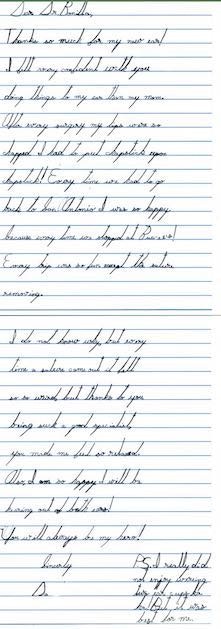 Dear Dr. 
Thanks so much for my new ear!
I felt very confident with you
doing things to my ear then my mom.
After every surgery my lips were so
chapped I had to put chapstick upon
chapstick! Every time we had to go
back to San Antonio I was so happy
because every time we stopped at
Every trip was so fun except the suture
removing.
I do not know why, but every
time a suture came out it felt
so so weird, but thanks to you
being such a good specialist,
you made me feel so relaxed.
Also, I am so happy I will be
hearing out of both ears!
You will always be my hero!
Sincerely
P.S. I really did
not enjoy wearing
but it was
for me.